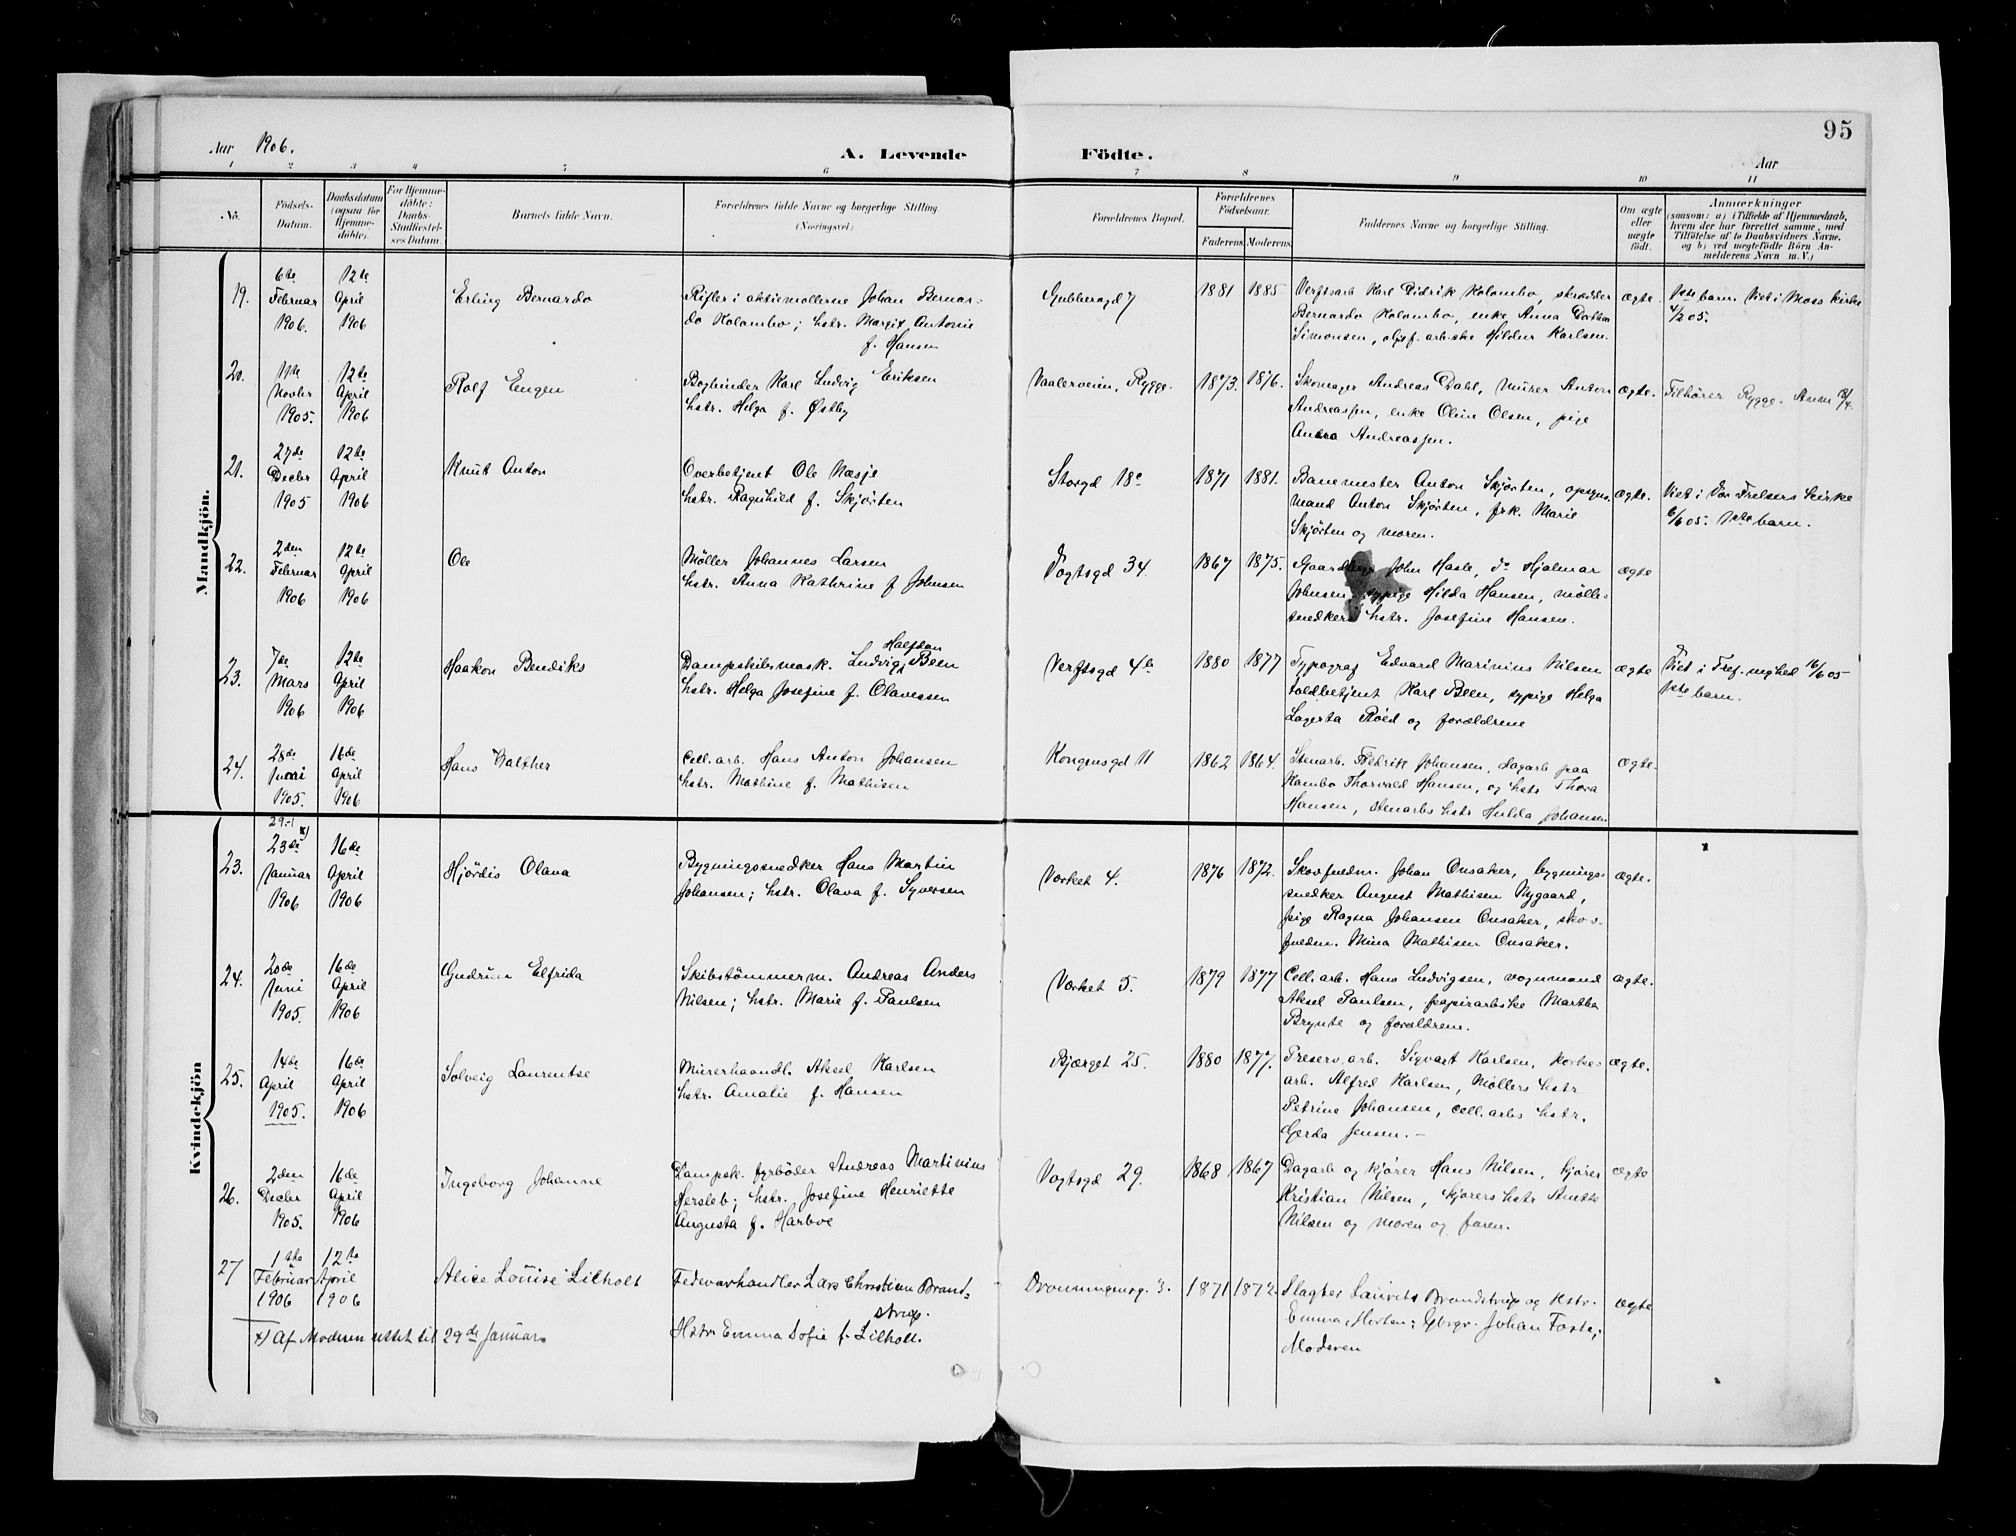 95
Aar 1906.
A. Levende Födte.
Aar
1 2 3 4 5 6 7 8 9 10 11
No.
Födsels-
Datum.
Daabsdatum
(ogsaa for
Hjemme-
döbte).
For Hjemme-
döbte:
Daabs-
Stadfæstel-
ses Datum.
Barnets fulde Navn.
Forældrenes fulde Navne og borgerlige Stilling.
(Næringsvei.)
Forældrenes Bopæl.
Forældrenes
Födselsaar.
Faderens. Moderens.
Faddernes Navne og borgerlige Stilling.
Om ægte
eller
uægte
födt.
Anmærkninger
(saasom: a) i Tilfælde af Hjemmedaab,
hvem der har forrettet samme, med
Tilföielse af to Daabsvidners Navne,
og b) ved uægtefödte Börn An-
melderens Navn m. V.)
Mandkjön.
19.
6te
Februar
1906.
12te
April
1906
Erling Bernardo
Rifler i aktiemøllerne Johan Bernar-
do Kolambo; hstr. Margit Antonie
f. Hansen
Gubberogd 7
1881 1885.
Verftsarb Karl Didrik Kolombo, skrædder
Bernardo Kolombo, enke Anna
Simonsen, arb.ske Hildur Karlsen.
ægte.
1ste barn. Viet i Moss kirke
4/2 05.
20.
11te
Novber
1905.
12te
April
1906
Rolf Engen
Bogbinder Karl Ludvig Eriksen
hstr. Helga f. Østby
Vaalerveien, Rygge.
1873. 1876.
Skomager Andreas Dahl, murer Anton
Andreassen, enke Oline Olsen, pige
Andreassen.
ægte.
Tilhører Rygge. Anm 18/4.
21.
27de
Decber
1905
12te
April
1906
Knut Anton
Overbetjent Ole Næsje
hstr. Ragnhild f. Skjørten
Storgd 18c
1871 1881.
Banemester Anton Skjørten, opsyns-
mand Anton Skjørten, frk. Marie
Skjørten og moren.
ægte.
Viet i Vor Frelsers kirke
6/6 05. 1ste barn.
22.
2den
Februar
1906
12te
April
1906
Ole
Møller Johannes Larsen
hstr. Anna Kathrine f Johnsen
Vogtsgd 34.
1867 1875.
John Hasle, do Hjalmar
Johnsen, sypige Hilda Hansen, mølle-
snedker hstr. Josefine Hansen.
ægte
23.
7de
Mars
1906
12te
April
1906
Haakon Bendiks
Halfdan
Dampskibsmask. Ludvig Been
hstr. Helga Josefine f. Olavessen
Verftsgd 4b
1880 1877
Typograf Edvard Marinius Nilsen
toldbetjent Karl Been, sypige Helga
Lagerta Röed og forældrene
ægte
Viet i Fref. mghed 16/6 05
1ste barn.
24.
28de
Juni
1905.
16de
April
1906
Hans Walther
Cell. arb. Hans Anton Johansen
hstr. Mathine f. Mathisen
Kongensgd 11
1862 1864.
Stenarb. Fredrik Johansen, dagarb paa
Kambo Thorvald Hansen, og hstr Thora
Hansen, stenarbs hstr Hulda Johansen
ægte.
Kvindekjön
23.
29-1
23de x)
Januar
1906
16de
April
1906
Hjördis Olava
Bygningssnedker Hans Martin
Johansen; hstr. Olava f. Syversen
Værket 4.
1876 1872.
Skovfuldm. Johan Onsaker, bygnings-
snedker August Mathisen Nygaard,
pige Ragna Johansen Onsaker, skov-
fuldm. Mina Mathisen Onsaker.
ægte.
24.
20de
Juni
1905.
16de
April
1906
Gudrun Elfrida
Skibstømmerm. Andreas Anders
Nilsen; hstr. Marie f. Paulsen
Værket 5.
1879 1877
Cell. arb. Hans Ludvigsen, vognmand
Aksel Paulsen, papirarbske Martha
Brynte og forældrene.
ægte.
25.
14de
April
1905.
16de
April
1906
Solveig Laurentse
Murerhaandl. Aksel Karlsen
hstr. Amalie f. Hansen
Bjærget 25.
1880 1877.
Preserv. arb. Sigvart Karlsen, korke-
arb. Alfred Karlsen, Møllers hstr
Petrine Johansen, cell. arbs hstr.
Gerda Jensen. –
ægte.
26.
2den
Decber
1905.
16de
April
1906
Ingeborg Johanne
Dampsk. fyrbøder Andreas Martinius
Hersleb; hstr. Josefine Henriette
Augusta f. Harboe
Vogtsgd 29.
1868 1867
Dagarb og kjører Hans Nilsen, kjører
Kristian Nilsen, kjørers hstr Anette
Nilsen og moren og faren.
ægte
27
1ste
Februar
1906
12te
April
1906
Alice Louise Lilholt
Fedevarhandler Lars Christian Brand-
strup.
Hstr Emma Sofie f. Lilholt.
Dronningensg. 3.
1871 1872.
Slagter Laurits Brandstrup og Hstr.
Emma Morten; Gbrgr. Johan Foste;
Moderen
ægte
x) Af Moderen rettet til 29de Januar.